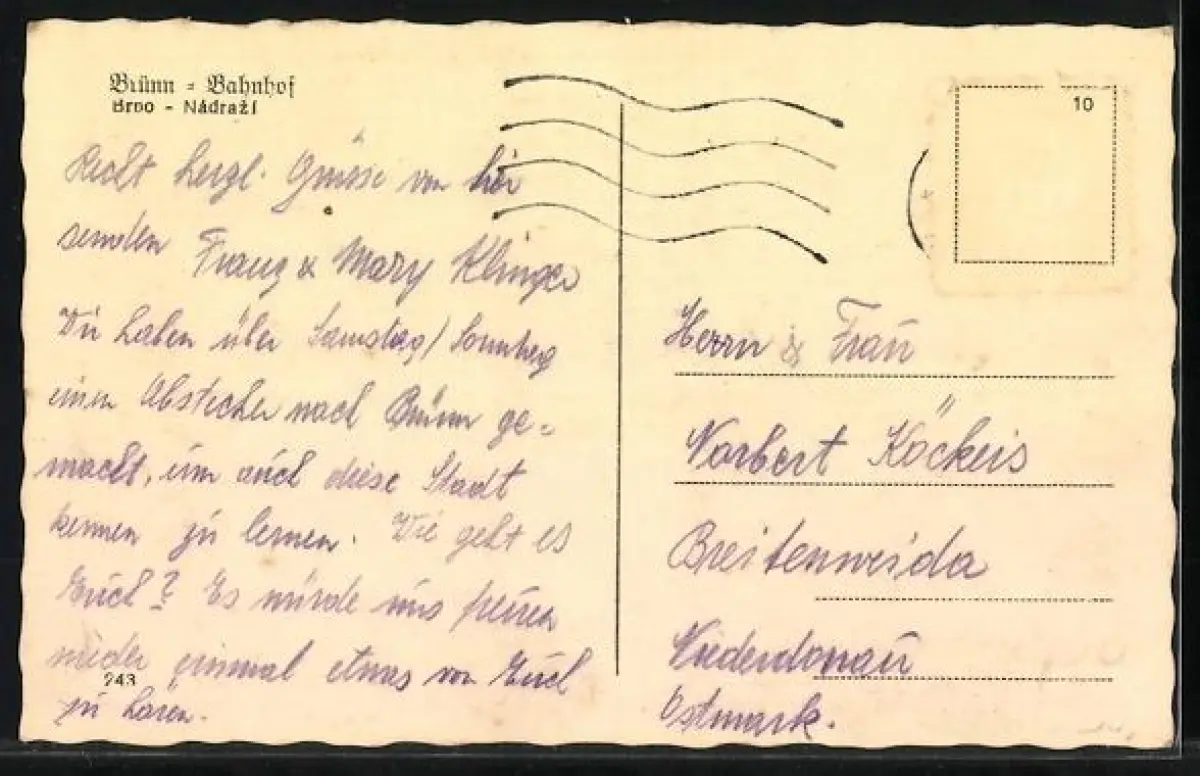 Brünn = Bahnhof
Brno - Nádraží
Recht herzl. Grüsse von hier
senden Franz & Mary Klinger
Wir haben über Samstag/Sonntag
einen Abstecher nach Brünn ge=
macht, um auch diese Stadt
kennen zu lernen. Wie geht es
Euch? Es würde uns freuen
wieder einmal etwas von Euch
zu hören.
243
10
Herrn & Frau
Norbert Köckeis
Breitenweida
Niederdonau
Ostmark.